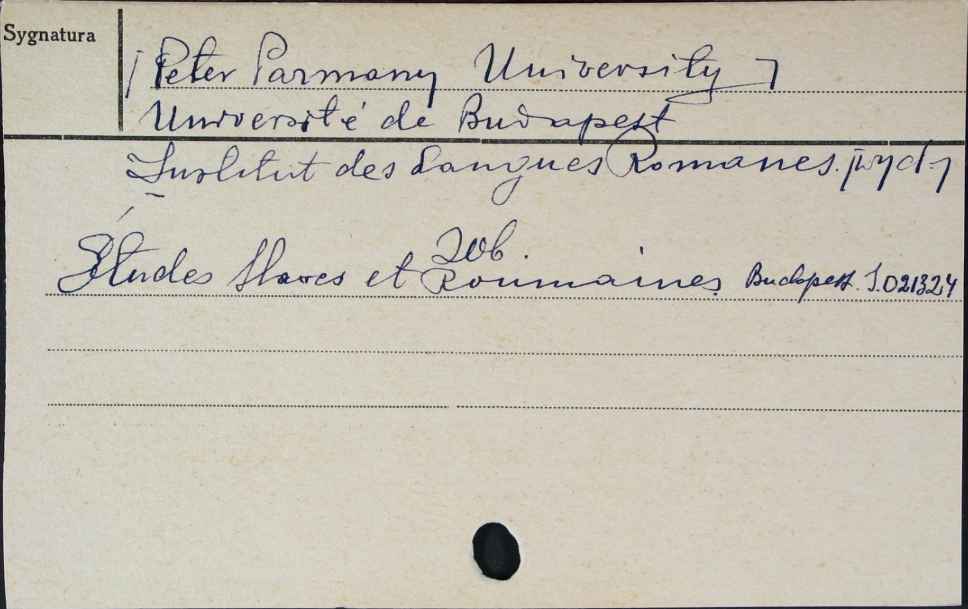 Sygnatura
[Peter Parmany University]
Université de Budapest
Institut des Langues Romanes. [wyd.]
Zob.
Études Slaves et Roumaines. Budapest. S.021324